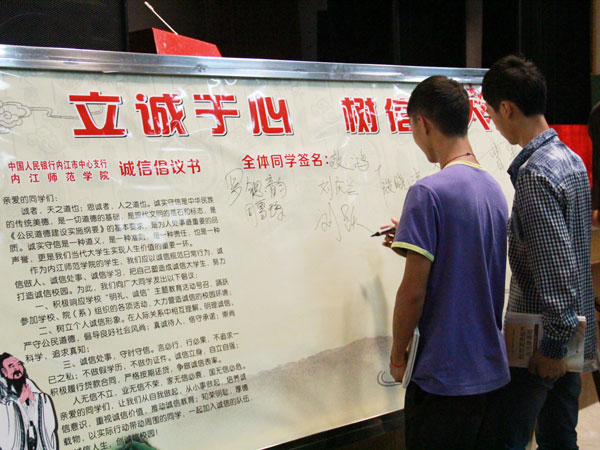 立诚于心 树信
中国人民银行内江市中心支行
内江师范学院
诚信倡议书
全体同学签名：
亲爱的同学们：
诚者，天之道也；思诚者，人之道也。诚实守信是中华民族
的传统美德，是一切道德的基础，是现代文明的基石和标志，是
《公民道德建设实施纲要》的基本要求，是为人处事最重要的品
质。诚实守信是一种道义，是一种准则，是一种责任，也是一种
声誉，更是我们当代大学生实现人生价值的重要一环。
作为内江师范学院的学生，我们应以诚信规范日常行为，诚
信做人、诚信处事、诚信学习，把自己塑造成诚信大学生，努力
打造诚信校园。为此，我们向广大同学发出以下倡议：
一、积极响应学校“明礼、诚信”主题教育活动号召，踊跃
参加学校、院（系）组织的各项活动，大力营造诚信的校园环境；
二、树立个人诚信形象。在人际关系中相互理解，明理诚信，
严守公民道德，倡导良好社会风尚；真诚待人，恪守承诺；崇尚
科学，追求真知；
三、诚信处事，守时守信。言必行，行必果，不追求一
己之私；不做假学历，不做伪证件。诚信立身，自立自强；
积极履行贷款合同，严格按期还贷，争做诚信表率。
人无信不立，业无信不荣，家无信必衰，国无信必危。
亲爱的同学们，让我们从自我做起，从小事做起，培养诚
信意识，重视诚信价值，推动诚信教育；知荣明耻，厚德
载物，以实际行动带动周围的同学，一起加入诚信的队伍，
诚信人生，创诚信校园！